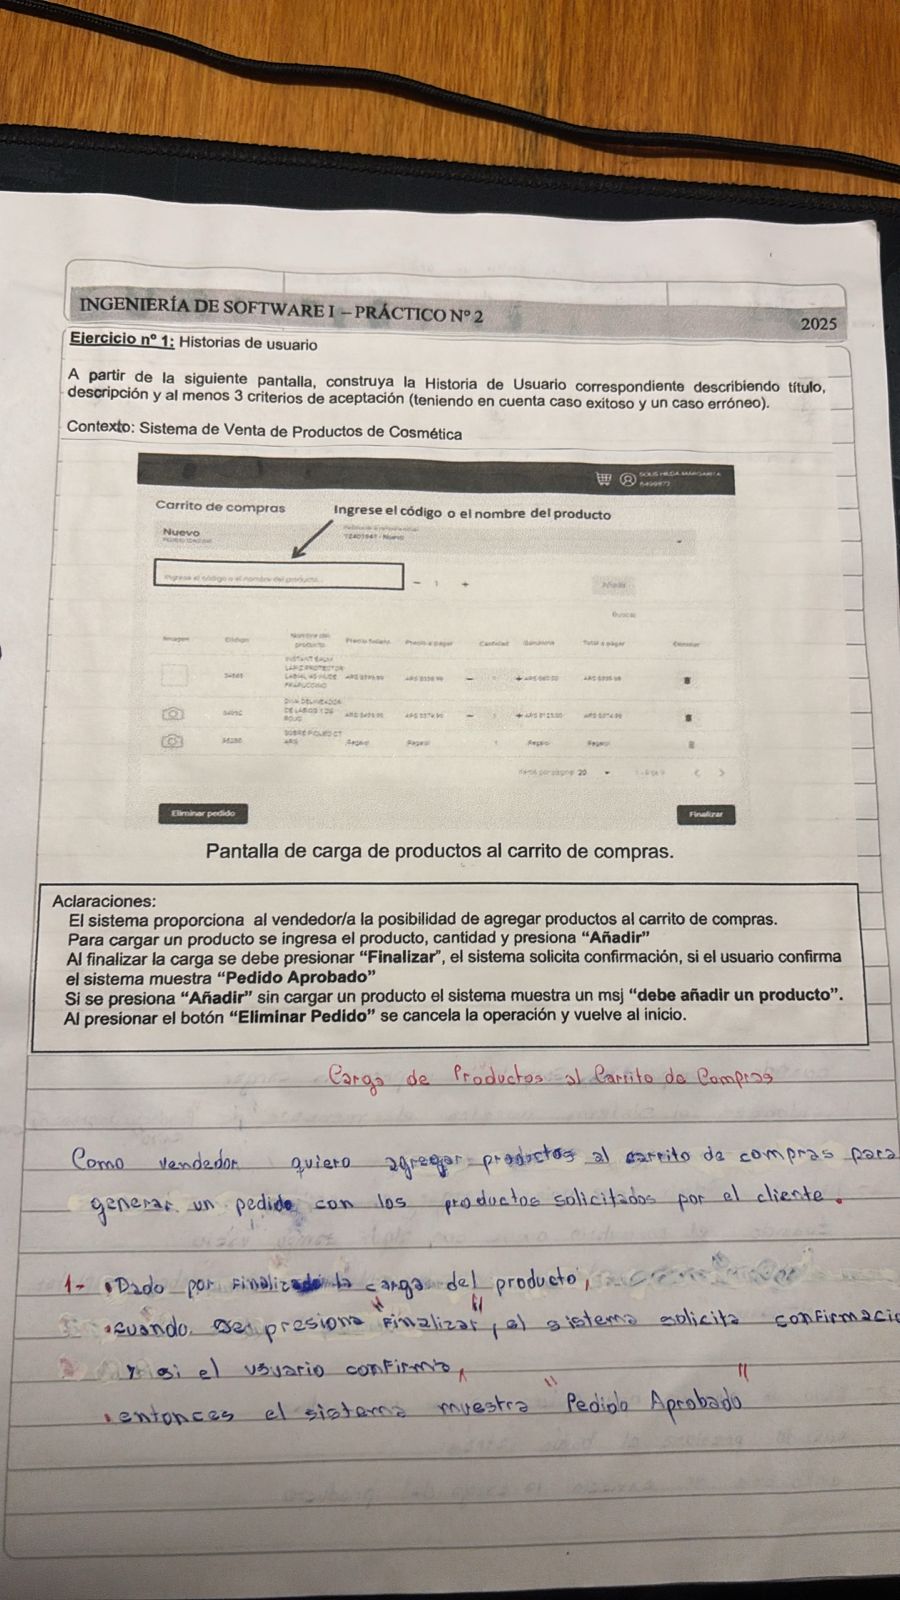 INGENIERÍA DE SOFTWARE I – PRÁCTICO Nº 2
2025
Ejercicio nº 1: Historias de usuario
A partir de la siguiente pantalla, construya la Historia de Usuario correspondiente describiendo título,
descripción y al menos 3 criterios de aceptación (teniendo en cuenta caso exitoso y un caso erróneo).
Contexto: Sistema de Venta de Productos de Cosmética
SOLIS HILDA MARGARITA
Carrito de compras
Ingrese el código o el nombre del producto
Nuevo
Ingrese el código o el nombre del producto...
- 1 +
Añadir
Buscar
Imagen Código Nombre del producto Precio a pagar Cantidad Ganancia Total a pagar
Regalo Regalo 1 Regalo Regalo
Items por página 20
Eliminar pedido
Finalizar
Pantalla de carga de productos al carrito de compras.
Aclaraciones:
El sistema proporciona al vendedor/a la posibilidad de agregar productos al carrito de compras.
Para cargar un producto se ingresa el producto, cantidad y presiona “Añadir”
Al finalizar la carga se debe presionar “Finalizar”, el sistema solicita confirmación, si el usuario confirma
el sistema muestra “Pedido Aprobado”
Si se presiona “Añadir” sin cargar un producto el sistema muestra un msj “debe añadir un producto”.
Al presionar el botón “Eliminar Pedido” se cancela la operación y vuelve al inicio.
Carga de Productos al Carrito de Compras
Como vendedor quiero agregar productos al carrito de compras para
generar un pedido con los productos solicitados por el cliente.
1- • Dado por finalizado la carga del producto,
• cuando se presiona "Finalizar", el sistema solicita confirmacio
y si el usuario confirma,
• entonces el sistema muestra "Pedido Aprobado"